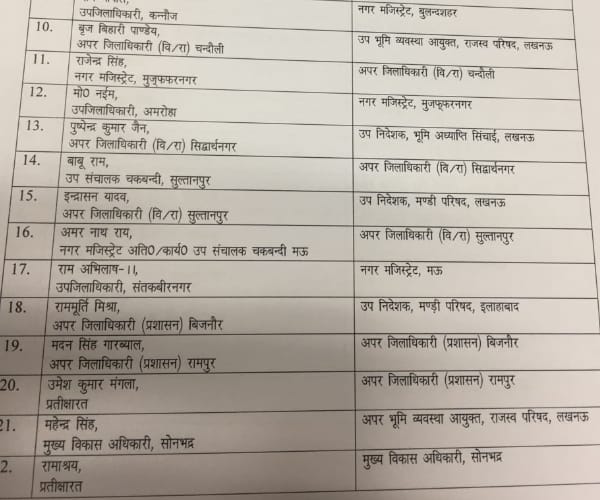 उपजिलाधिकारी, कन्नौज
नगर मजिस्ट्रेट, बुलन्दशहर
10. बृज बिहारी पाण्डेय,
अपर जिलाधिकारी (वि/रा) चन्दौली
उप भूमि व्यवस्था आयुक्त, राजस्व परिषद, लखनऊ
11. राजेन्द्र सिंह,
नगर मजिस्ट्रेट, मुज्फफरनगर
अपर जिलाधिकारी (वि/रा) चन्दौली
12. मो0 नईम,
उपजिलाधिकारी, अमरोहा
नगर मजिस्ट्रेट, मुजफ्फरनगर
13. पुष्पेन्द्र कुमार जैन,
अपर जिलाधिकारी (वि/रा) सिद्वार्थनगर
उप निदेशक, भूमि अध्याप्ति सिंचाई, लखनऊ
14. बाबू राम,
उप संचालक चकबन्दी, सुल्तानपुर
अपर जिलाधिकारी (वि/रा) सिद्वार्थनगर
15. इन्द्रासन यादव,
अपर जिलाधिकारी (वि/रा) सुल्तानपुर
उप निदेशक, मण्डी परिषद, लखनऊ
16. अमर नाथ राय,
नगर मजिस्ट्रेट अति0/कार्य0 उप संचालक चकबन्दी मऊ
अपर जिलाधिकारी (वि/रा) सुल्तानपुर
17. राम अभिलाष-।।,
उपजिलाधिकारी, संतकबीरनगर
नगर मजिस्ट्रेट, मऊ
18. राममूर्ति मिश्रा,
अपर जिलाधिकारी (प्रशासन) बिजनौर
उप निदेशक, मण्ड़ी परिषद, इलाहाबाद
19. मदन सिंह गारब्याल,
अपर जिलाधिकारी (प्रशासन) रामपुर
अपर जिलाधिकारी (प्रशासन) बिजनौर
20. उमेश कुमार मंगला,
प्रतीक्षारत
अपर जिलाधिकारी (प्रशासन) रामपुर
21. महेन्द्र सिंह,
मुख्य विकास अधिकारी, सोनभद्र
अपर भूमि व्यवस्था आयुक्त, राजस्व परिषद, लखनऊ
2. रामाश्रय,
प्रतीक्षारत
मुख्य विकास अधिकारी, सोनभद्र